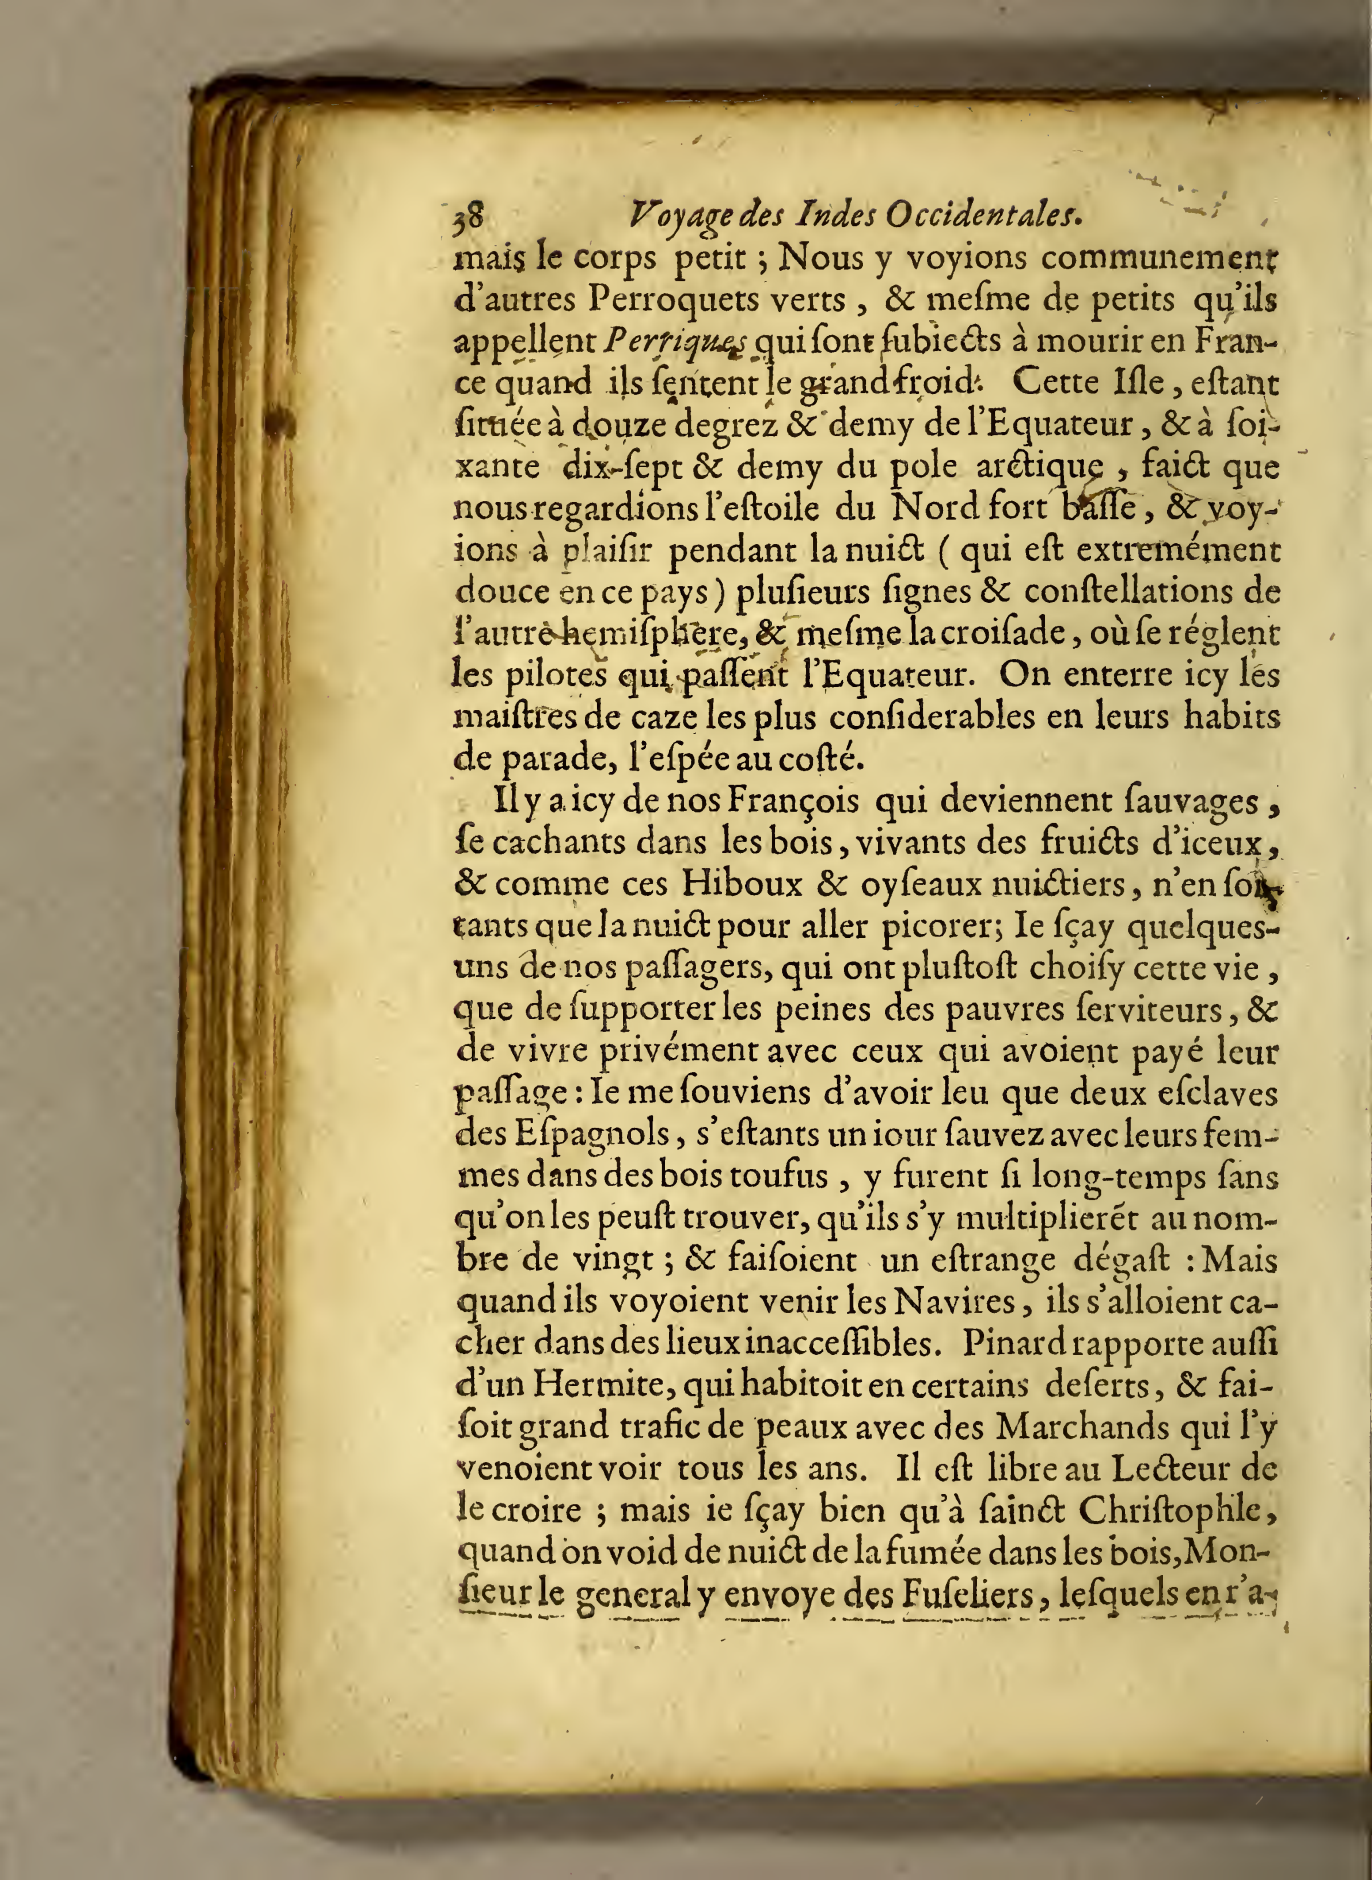 38 Voyage des Indes Occidentales.
mais le corps petit ; Nous y voyions communement
d'autres Perroquets verts , & meſme de petits qu'ils
appellent Perriques qui ſont ſubiects à mourir en Fran-
ce quand ils ſentent le grand froid. Cette Iſle , eſtant
ſituée à douze degrez & demy de l'Equateur , & à ſoi-
xante dix-ſept & demy du pole arctique , faict que
nous regardions l'eſtoile du Nord fort baſſe , & voy-
ions à plaiſir pendant la nuict ( qui eſt extremément
douce en ce pays ) pluſieurs ſignes & conſtellations de
l'autre hemiſphere, & meſme la croiſade , où ſe réglent
les pilotes qui paſſent l'Equateur. On enterre icy les
maiſtres de caze les plus conſiderables en leurs habits
de parade, l'eſpée au coſté.
Il y a icy de nos François qui deviennent ſauvages ,
ſe cachants dans les bois , vivants des fruicts d'iceux ,
& comme ces Hiboux & oyſeaux nuictiers , n'en ſor-
tants que la nuict pour aller picorer; Ie ſçay quelques-
uns de nos paſſagers, qui ont pluſtoſt choiſy cette vie ,
que de ſupporter les peines des pauvres ſerviteurs , &
de vivre privément avec ceux qui avoient payé leur
paſſage : Ie me ſouviens d'avoir leu que deux eſclaves
des Eſpagnols , s'eſtants un iour ſauvez avec leurs fem-
mes dans des bois toufus , y furent ſi long-temps ſans
qu'on les peuſt trouver, qu'ils s'y multiplierẽt au nom-
bre de vingt ; & faiſoient un eſtrange dégaſt : Mais
quand ils voyoient venir les Navires , ils s'alloient ca-
cher dans des lieux inacceſſibles. Pinard rapporte auſſi
d'un Hermite, qui habitoit en certains deſerts , & fai-
ſoit grand trafic de peaux avec des Marchands qui l'y
venoient voir tous les ans. Il eſt libre au Lecteur de
le croire ; mais ie ſçay bien qu'à ſainct Chriſtophle ,
quand on void de nuict de la fumée dans les bois, Mon-
ſieur le general y envoye des Fuſeliers , leſquels en r'a-